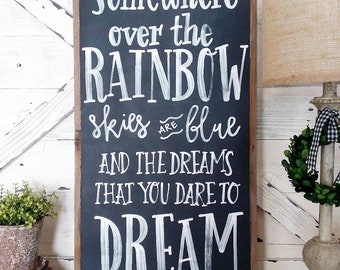 somewhere
over the
RAINBOW
skies ARE blue
AND THE DREAMS
THAT YOU DARE TO
DREAM